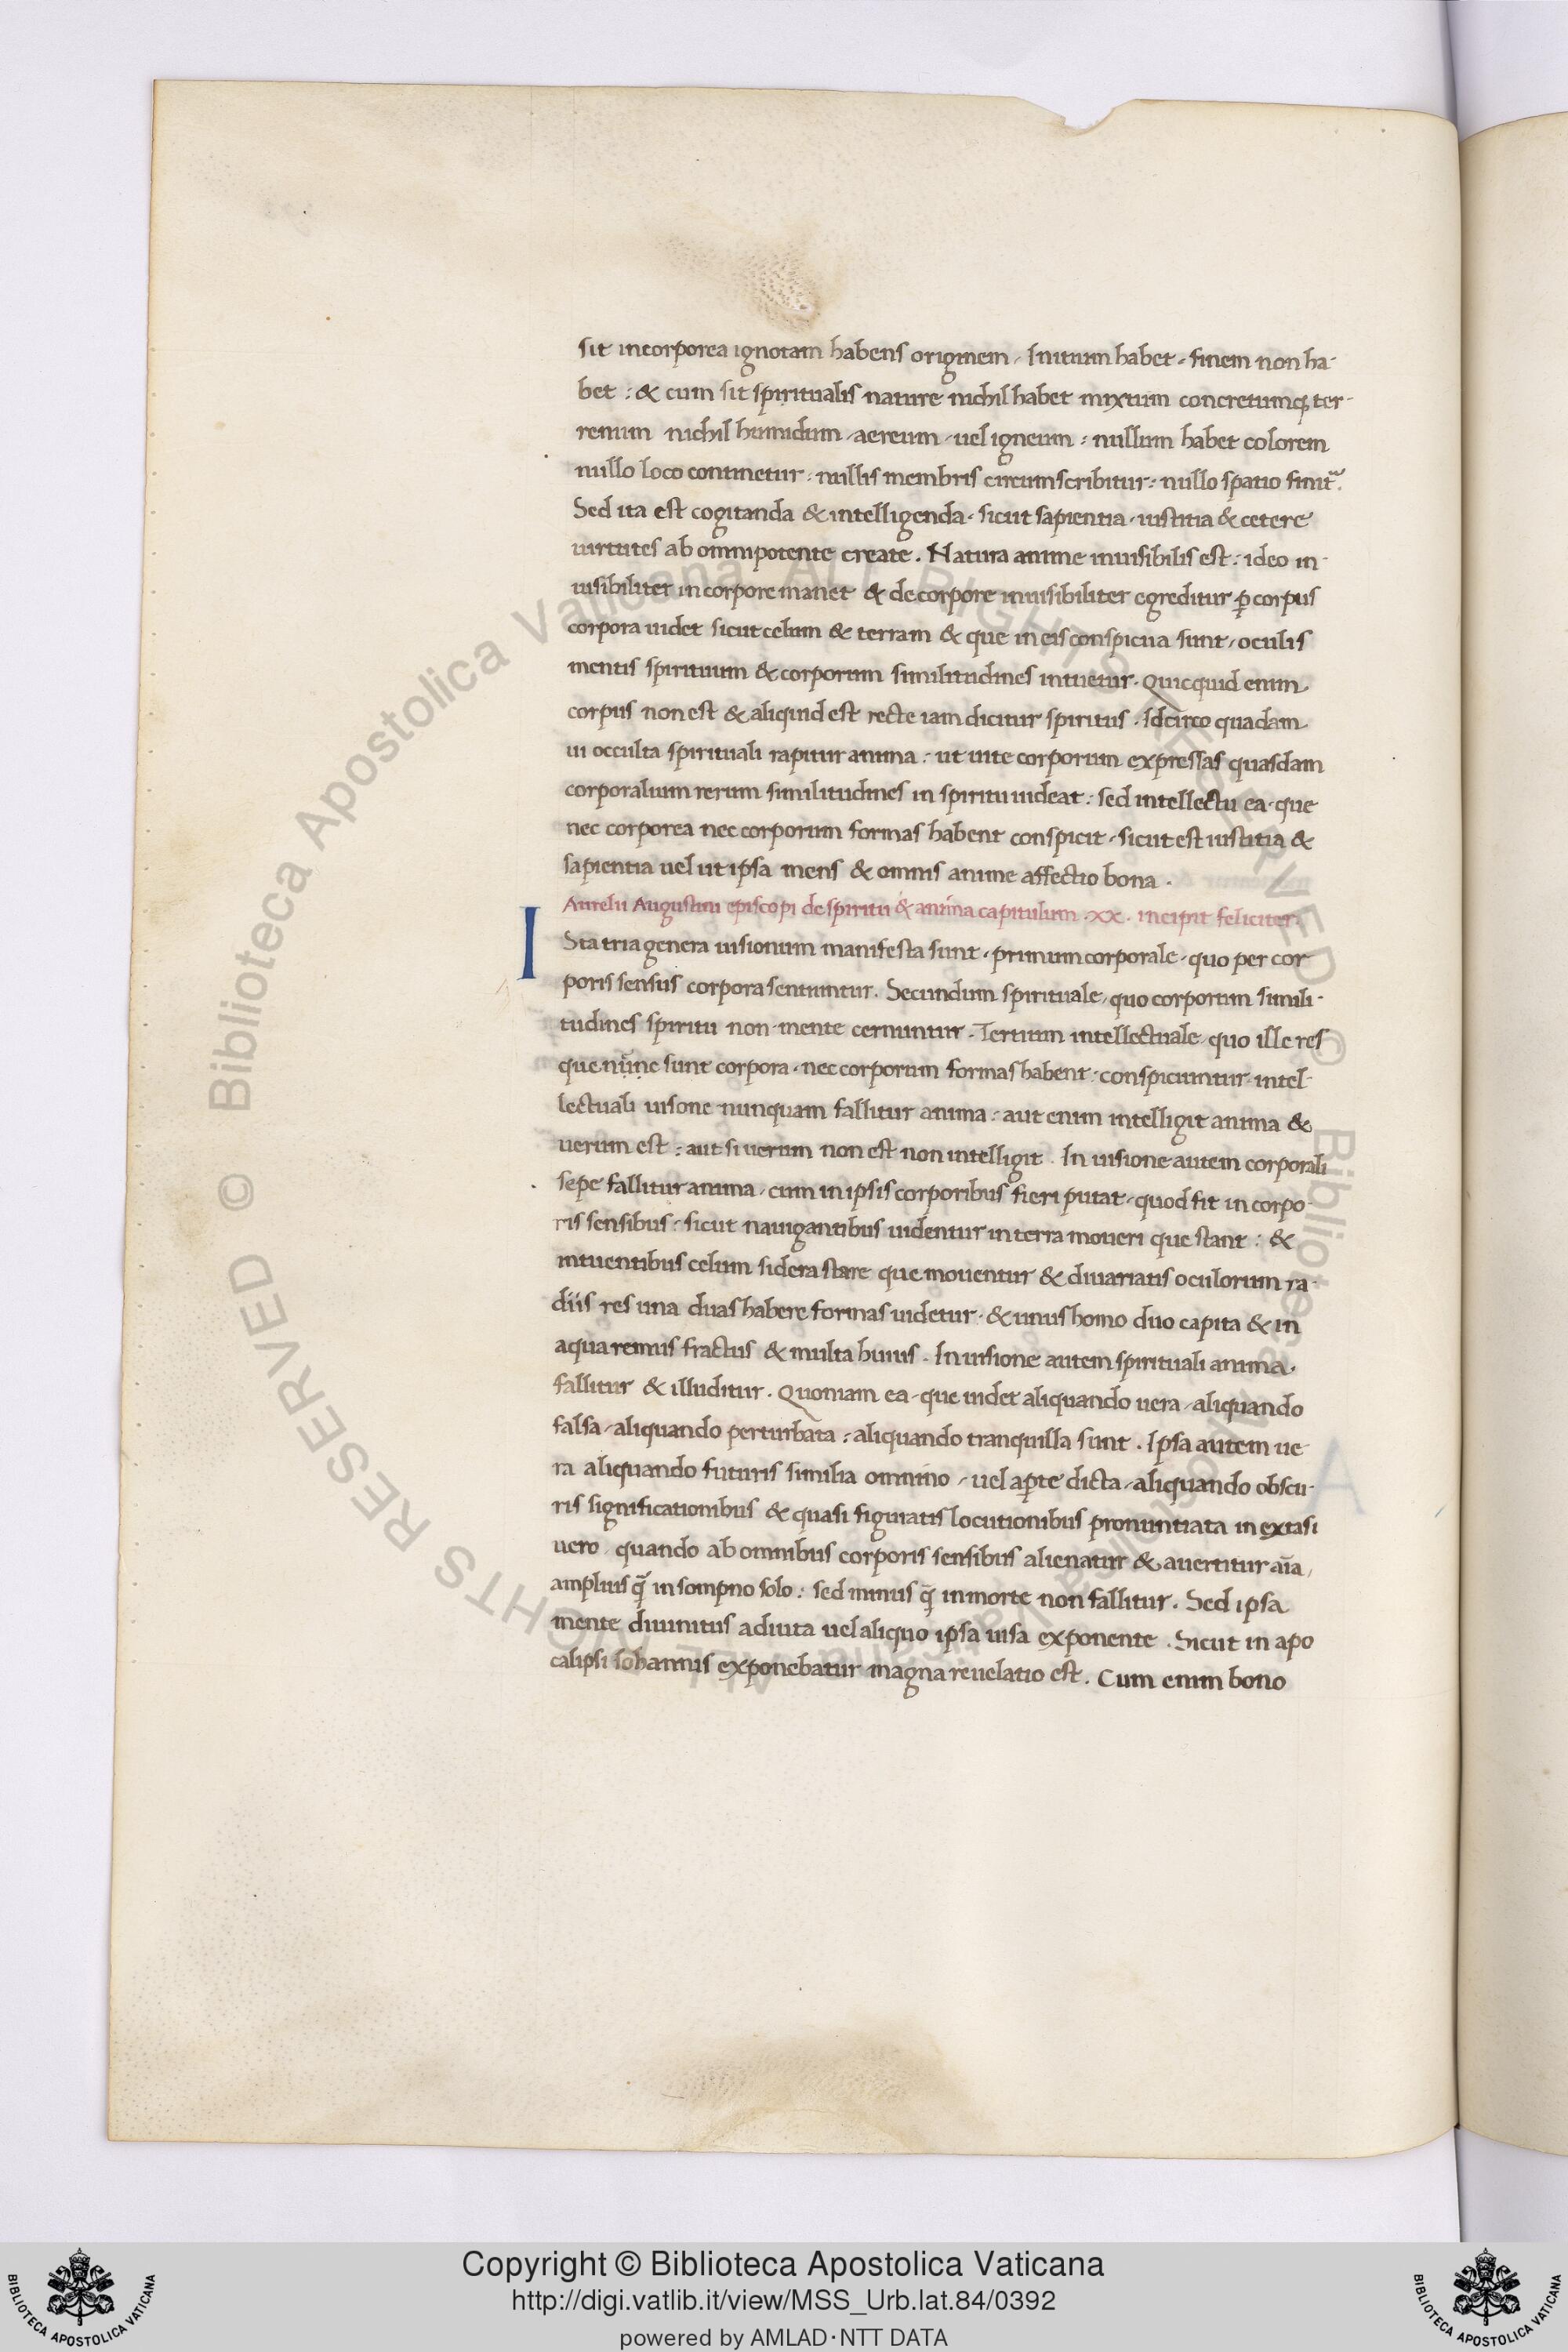 sit incorporea ignotam habens originem. Initium habet. finem non ha-
bet: & cum sit spiritualis nature nichil habet mixtum concretumq; ter-
renum nichil humidum. aereum. uel igneum: nullum habet colorem
nullo loco continetur: nullis membris circumscribitur: nullo spatio finit᷑.
Sed ita est cogitanda & intelligenda. sicut sapientia. iustitia & cetere
uirtutes ab omnipotente create. Natura anime inuisibilis est: ideo in-
uisibiliter in corpore manet & de corpore inuisibiliter egreditur ꝑ corpus
corpora uidet sicut celum & terram & que in eis conspicua sunt. oculis
mentis spirituum & corporum similitudines intuetur. Quicquid enim
corpus non est & aliquid est recte iam dicitur spiritus. Idcirco quadam
ui occulta spirituali rapitur anima: ut uite corporum expressas quasdam
corporalium rerum similitudines in spiritu uideat: sed intellectu ea. que
nec corporea nec corporum formas habent conspicit. sicut est iustitia &
sapientia uel ut ipsa mens & omnis anime affectio bona.
Aurelii Augustini episcopi de spiritu & anima capitulum .xx. incipit feliciter.
ISta tria genera uisionum manifesta sunt. primum corporale. quo per cor
poris sensus corpora sentiuntur. Secundum spirituale. quo corporum simili-
tudines spiritu non mente cernuntur. Tertium intellectuale quo ille res
que sunt corpora. nec corporum formas habent: conspiciuntur. intel-
lectuali uisone nunquam fallitur anima: aut enim intelligit anima &
uerum est: aut si uerum non est non intelligit. In uisione autem corporali
sepe fallitur anima. cum in ipsis corporibus fieri putat. quod fit in corpo-
ris sensibus. sicut nauigantibus uidentur in terra moueri que stant: &
intuentibus celum sidera stare que mouentur & diuariatis oculorum ra-
diis res una duas habere formas uidetur. & unus homo duo capita & in
aqua remus fractus & multa huius. In uisione autem spirituali anima.
fallitur & illuditur. Quoniam ea. que uidet aliquando uera. aliquando
falsa. aliquando perturbata: aliquando tranquilla sunt. Ipsa autem ue-
ra aliquando futuris similia omnino. uel aꝑte dicta. aliquando obscu-
ris significationibus & quasi figuratis locutionibus pronuntiata in extasi
uero. quando ab omnibus corporis sensibus alienatur & auertitur aīa.
amplius q̃ in sompno solo: sed minus q̃ in morte non fallitur. Sed ipsa
mente diuinitus adiuta uel aliquo ipsa uisa exponente. Sicut in apo
calipsi Iohannis exponebatur magna reuelatio est. Cum enim bono
Copyright © Biblioteca Apostolica Vaticana
http://digi.vatlib.it/view/MSS_Urb.lat.84/0392
powered by AMLAD·NTT DATA
BIBLIOTECA APOSTOLICA VATICANA
BIBLIOTECA APOSTOLICA VATICANA
© Biblioteca Apostolica Vaticana ALL RIGHTS RESERVED
© Biblioteca Apostolica Vaticana ALL RIGHTS RESERVED